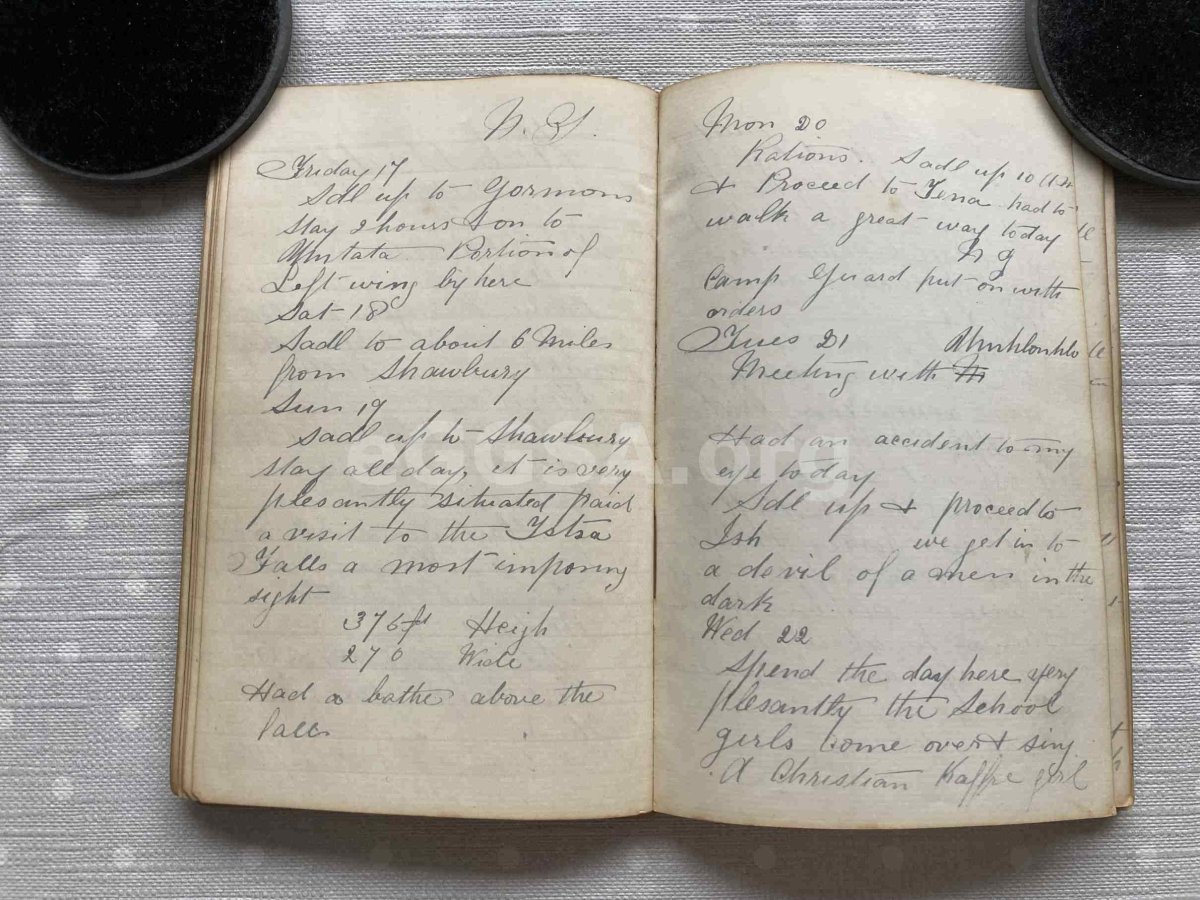 Friday 17
Sdl up to Gormons
stay 2 hours & on to
Umtata Portion of
Left wing by here
Sat 18
Sadl to about 6 Miles
from Shawbury
Sun 19
Sadl up to Shawbury
stay all day, it is very
plesantly situated paid
a visit to the Tstsa
Falls a most imposing
sight
376 ft Heigh
270 Wide
Had a bathe above the
falls
Mon 20
Rations. Sadl up 10 AM
& Proceed to Tena had to
walk a great way today
Camp Guard put on with
orders
Tues 21 Umhlonhlo
Meeting with
Had an accident to my
eye today
Sdl up & proceed to
Ish we get in to
a devil of a mess in the
dark
Wed 22
Spend the day here very
plesantly the School
girls come over & sing
A Christian Kaffre girl
eGGSA.org